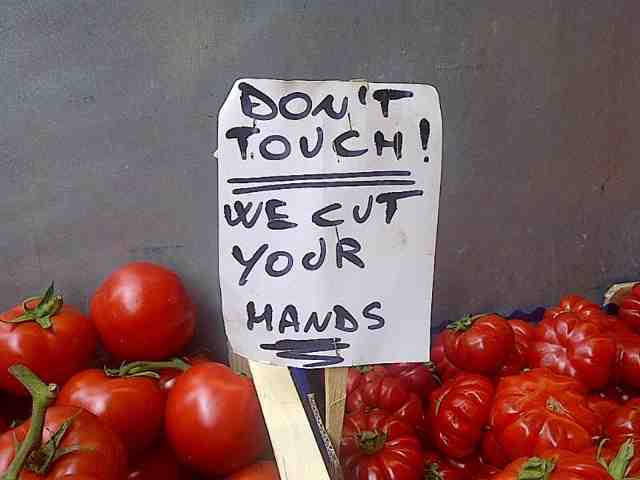 DON'T
TOUCH!
WE CUT
YOUR
HANDS